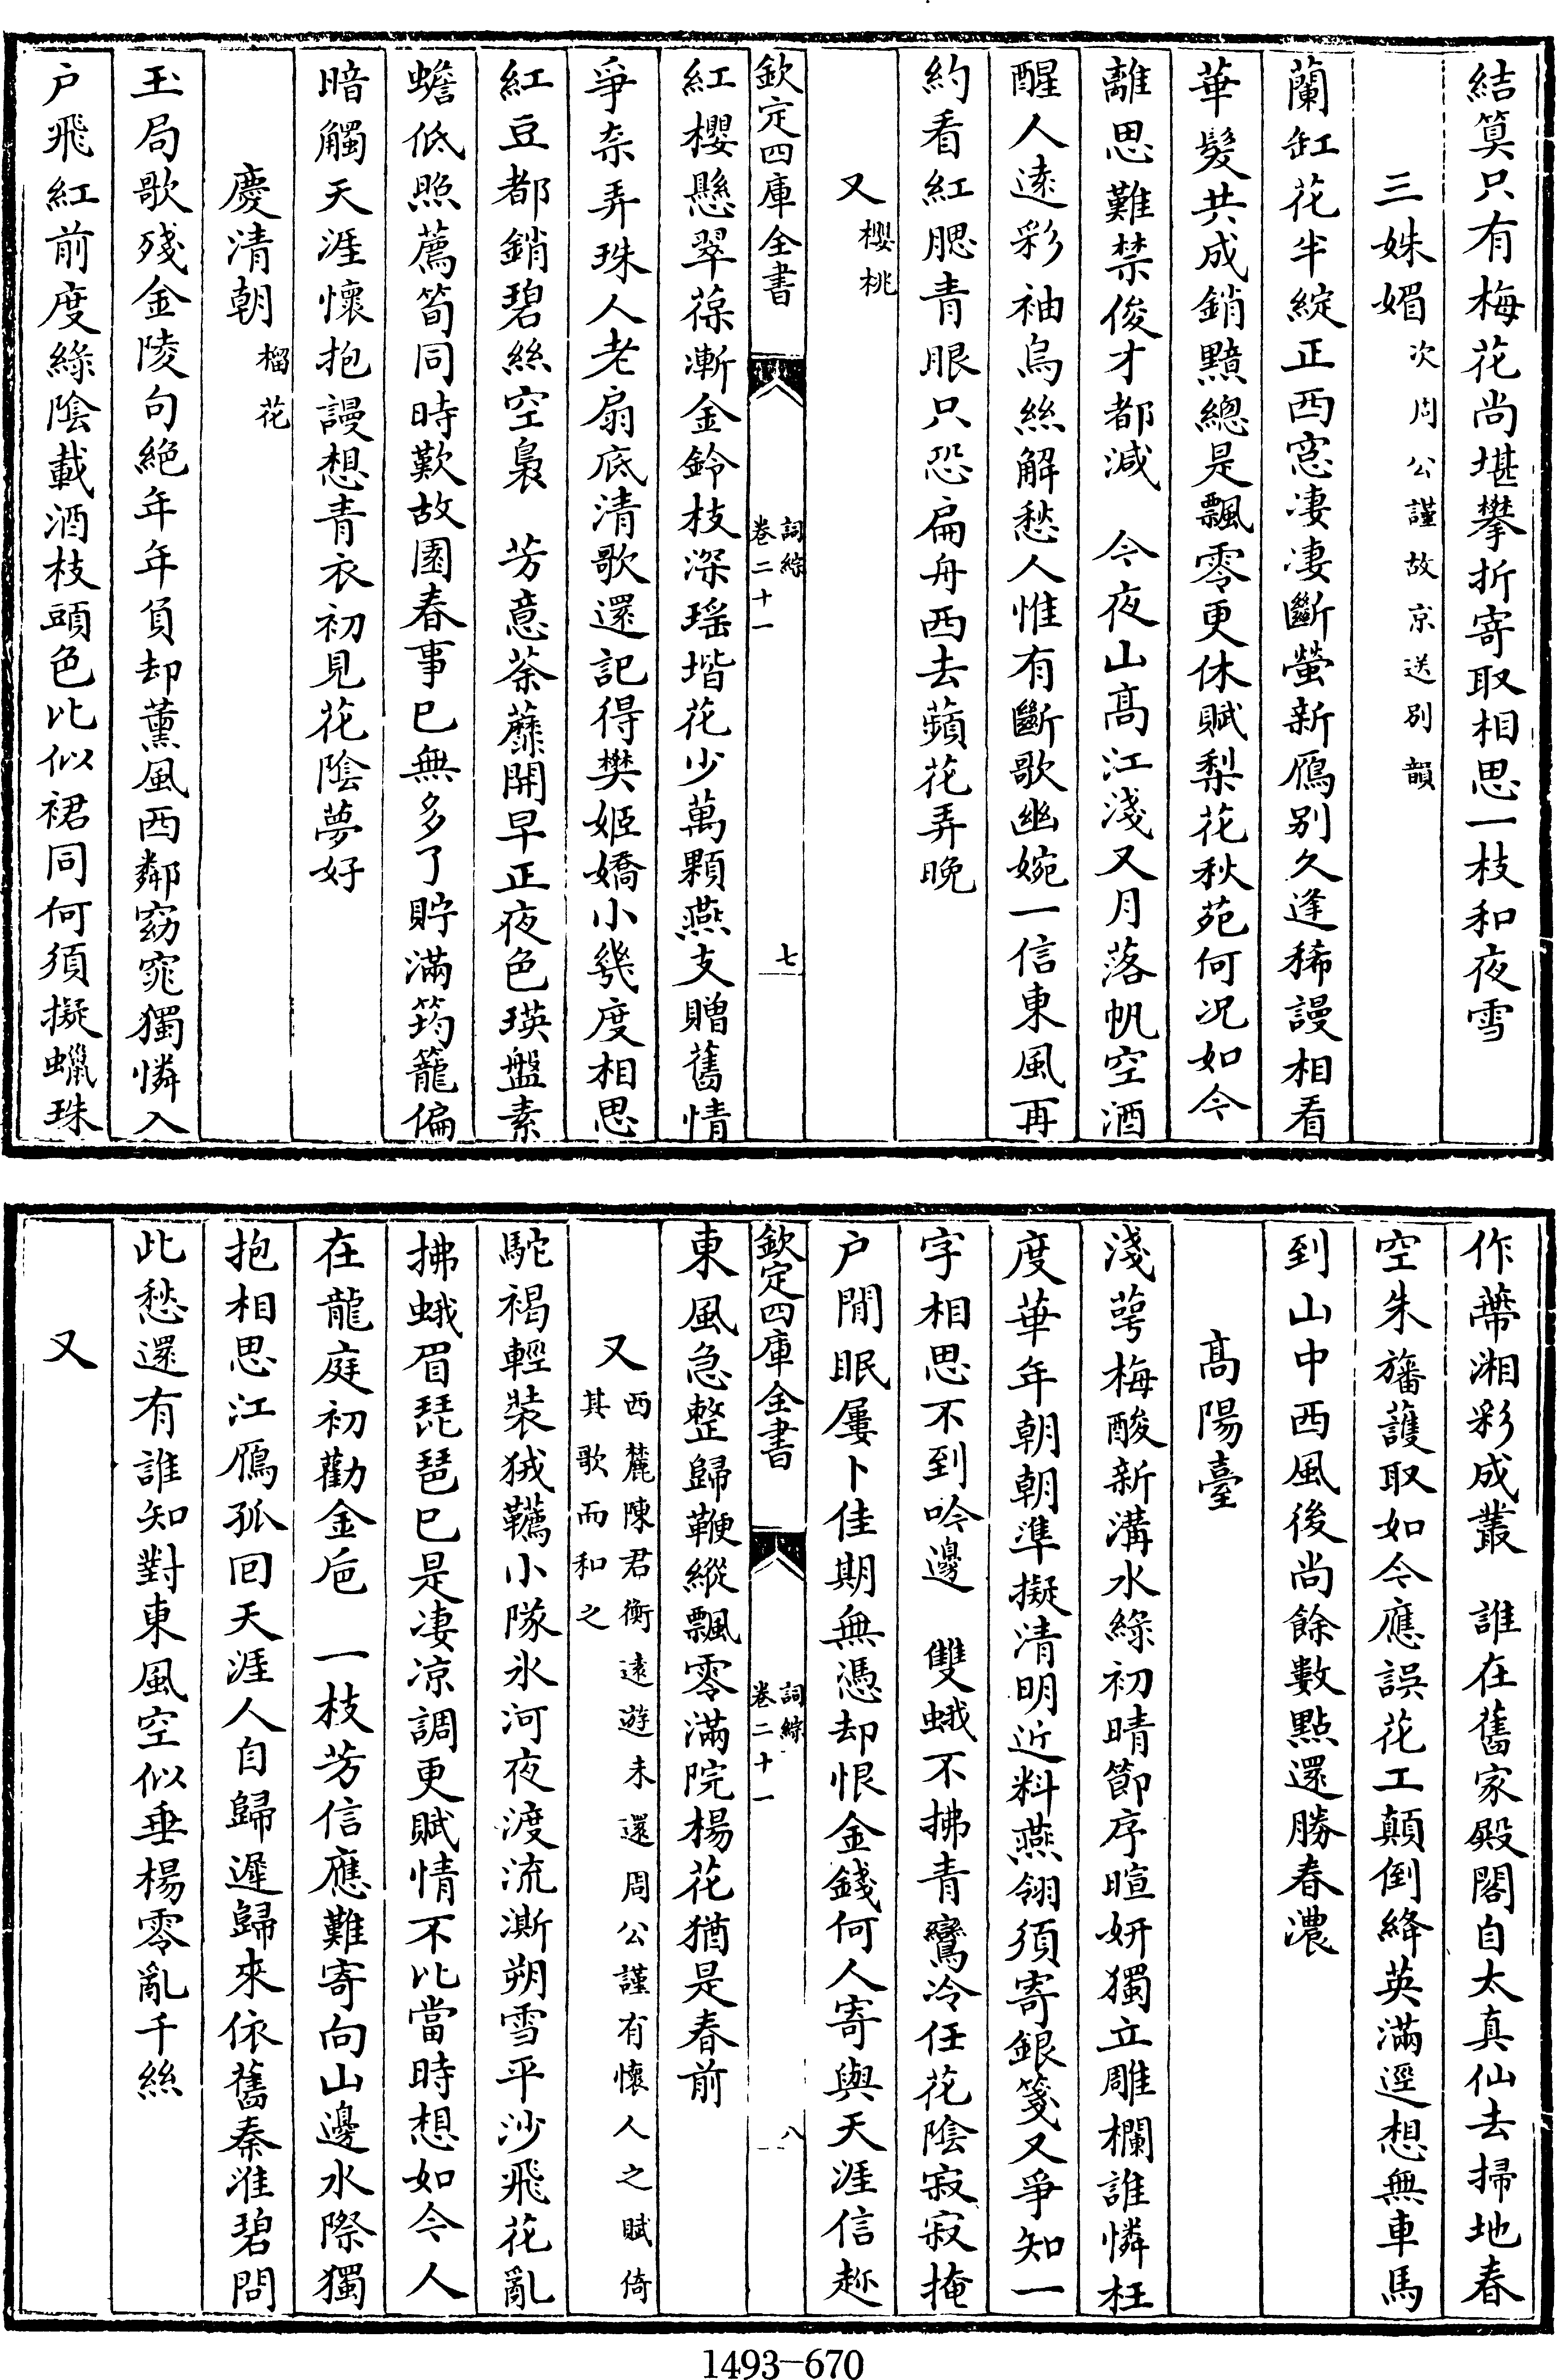 結筭只有梅花尚堪攀折寄取相思一枝和夜雪
三姝媚次周公謹故京送别韻
蘭缸花半綻正西窓凄凄斷螢新鴈别久逢稀謾相看
華髮共成銷黯總是飄零更休賦梨花秋苑何况如今
離思難禁俊才都減　今夜山髙江淺又月落帆空酒
醒人逺彩袖烏絲解愁人惟有斷歌幽婉一信東風再
約看紅腮青眼只恐扁舟西去蘋花弄晚
又櫻桃
欽定四庫全書
詞綜
卷二十一
七
紅櫻懸翠葆漸金鈴枝深瑶堦花少萬顆燕支贈舊情
爭柰弄珠人老扇底清歌還記得樊姬嬌小幾度相思
紅豆都銷碧絲空裊　芳意荼蘼開早正夜色瑛盤素
蟾低照薦筍同時歎故園春事已無多了貯滿筠籠偏
暗觸天涯懷抱謾想青衣初見花陰夢好
慶清朝榴花
玉局歌殘金陵句絶年年負却薰風西鄰窈窕獨憐入
户飛紅前度綠陰載酒枝頭色比似裙同何須擬蠟珠
作蔕湘彩成叢　誰在舊家殿閣自太真仙去掃地春
空朱旛護取如今應誤花工顛倒絳英滿逕想無車馬
到山中西風後尚餘數點還勝春濃
髙陽臺
淺萼梅酸新溝水綠初晴節序暄妍獨立雕欄誰憐枉
度華年朝朝準擬清明近料燕翎須寄銀箋又爭知一
字相思不到吟邊　雙蛾不拂青鸞冷任花陰寂寂掩
户閒眠屢卜佳期無憑却恨金錢何人寄與天涯信趂
東風急整歸鞭縱飄零滿院楊花猶是春前
欽定四庫全書
詞綜
卷二十一
八
又西麓陳君衡逺遊未還周公謹有懷人之賦倚
其歌而和之
駝褐輕装狨韉小隊氷河夜渡流澌朔雪平沙飛花亂
拂蛾眉琵琶已是凄凉調更賦情不比當時想如今人
在龍庭初勸金巵　一枝芳信應難寄向山邊水際獨
抱相思江鴈孤回天涯人自歸遲歸來依舊秦淮碧問
此愁還有誰知對東風空似垂楊零亂千絲
又
1493—670